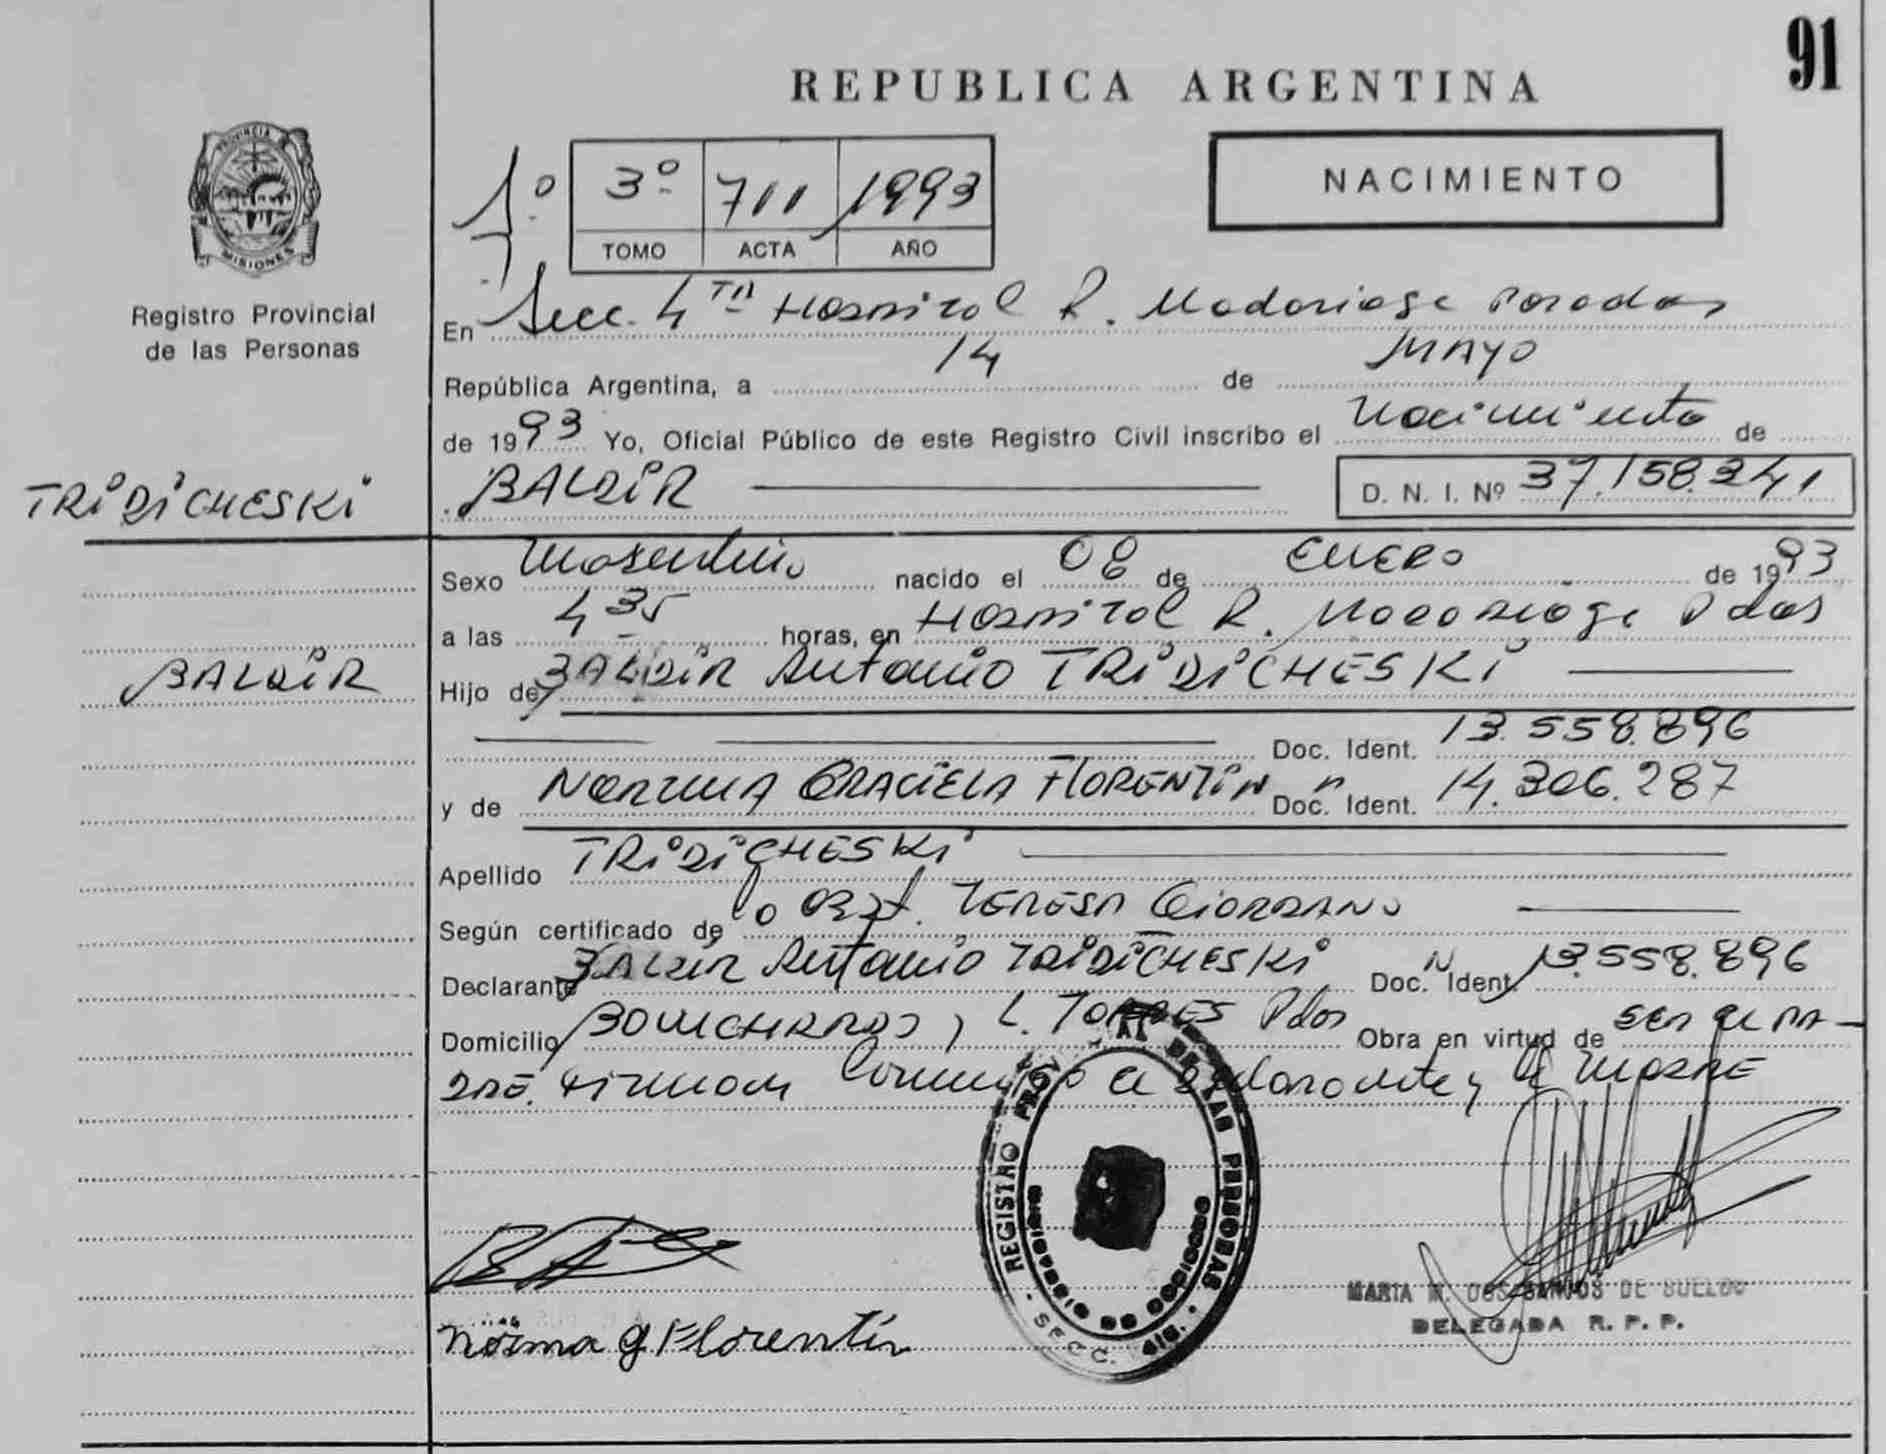 91
REPUBLICA ARGENTINA
NACIMIENTO
1º 3º 711 1993
TOMO ACTA AÑO
PROVINCIA DE MISIONES
Registro Provincial
de las Personas
En Secc. 4TA Hospital R. Madariaga Posadas
República Argentina, a 14 de MAYO
de 1993 Yo, Oficial Público de este Registro Civil inscribo el Nacimiento de
TRIDICHESKI
BALDIR D. N. I. Nº 37.158.341
Sexo Masculino nacido el 08 de ENERO de 1993
a las 4 35 horas, en Hospital R. Madariaga Pdas
BALDIR
Hijo de BALDIR Antonio TRIDICHESKI
Doc. Ident. 13.558.896
y de NORMA GRACIELA FLORENTIN Doc. Ident. 14.306.287
Apellido TRIDICHESKI
Según certificado de la Obst. TERESA GIORDANO
Declarante BALDIR Antonio TRIDICHESKI Doc. Ident. 13.558.896
Domicilio BOUCHARD y L. TORRES Pdas Obra en virtud de SER el PA-
DRE. Firman Conmigo el declarante y la MADRE
REGISTRO PROVINCIAL DE LAS PERSONAS
SECC.
Norma G Florentín
MARIA M. DOS SANTOS DE
DELEGADA R. P. P.